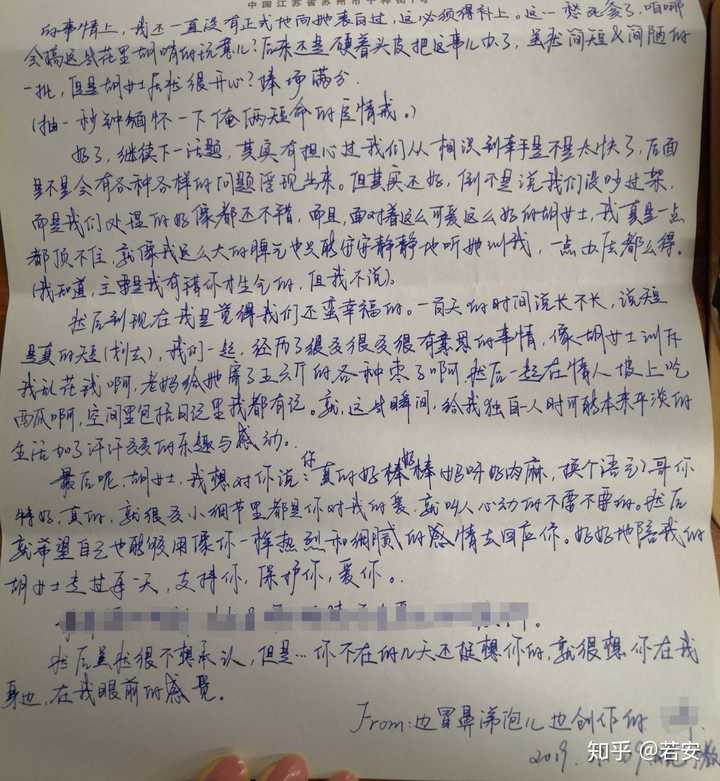 中国江苏省苏州市十梓街1号
的事情上,我还一直没有正式地向她表白过,这必须得补上。这…愁死爹了,咱哪
会搞这些花里胡哨的玩意儿?后来还是硬着头皮把这事儿办了,虽然简短&简陋的
一批,但是胡女士居然很开心?捧场满分.
(抽一秒钟缅怀一下俺俩短命的
好了,继续下一话题,其实有担心过我们从相识到牵手是不是太快了,后面
是不是会有各种各样的问题浮现出来。但其实还好,倒不是说我们没吵过架,
而是我们处理的好像都还不错,而且,面对着这么可爱这么好的胡女士,我真是一点
都顶不住,就像我这么大的脾气也只能安安静静地听她训我,一点办法都么得。
(我知道,主要是我有错你才生气的,但我不说)。
然后到现在我是觉得我们还蛮幸福的。一百天的时间说长不长,说短
是真的短(划去),我们一起,经历了很多很多很有意思的事情,像胡女士训斥
我乱花钱啊,老妈给她寄了五六斤的各种枣子啊,然后一起在情人坡上吃
西瓜啊,空间里包括日记里我都有记。就,这些瞬间,给我独自一人时可能本来平淡的
生活加了许许多多的乐趣与感动。
最后呢,胡女士,我想对你说:你真的好棒好棒(妈呀好肉麻,换个语气)哥你
特好,真的,就很多小细节里都是你对我的爱,就叫人心动的不要不要的。然后
就希望自己也能够用像你一样热烈和细腻的感情去回应你。好好地陪我的
胡女士走过每一天,支持你,保护你,爱你。
然后虽然很不想承认,但是…你不在的几天还挺想你的,就很想你在我
身边,在我眼前的感觉。
From:边冒鼻涕泡儿边创作的
2019.
知乎 @若安